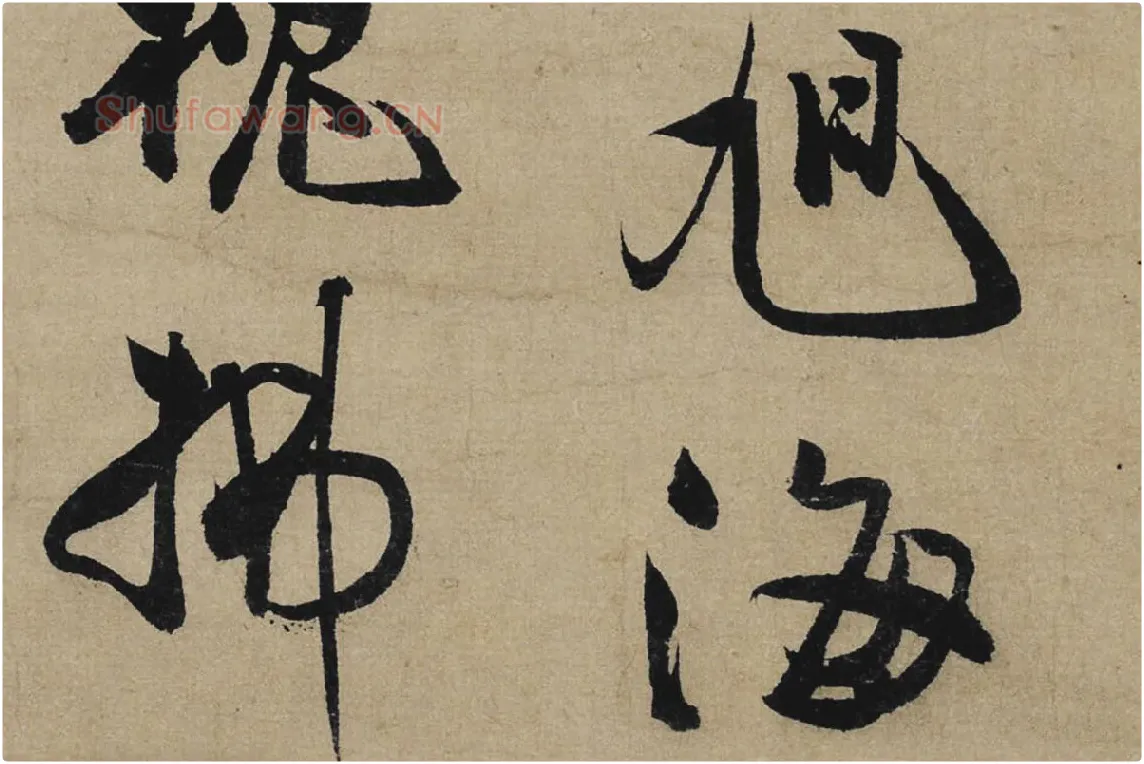 旭海
槐拂
Shufawang.CN